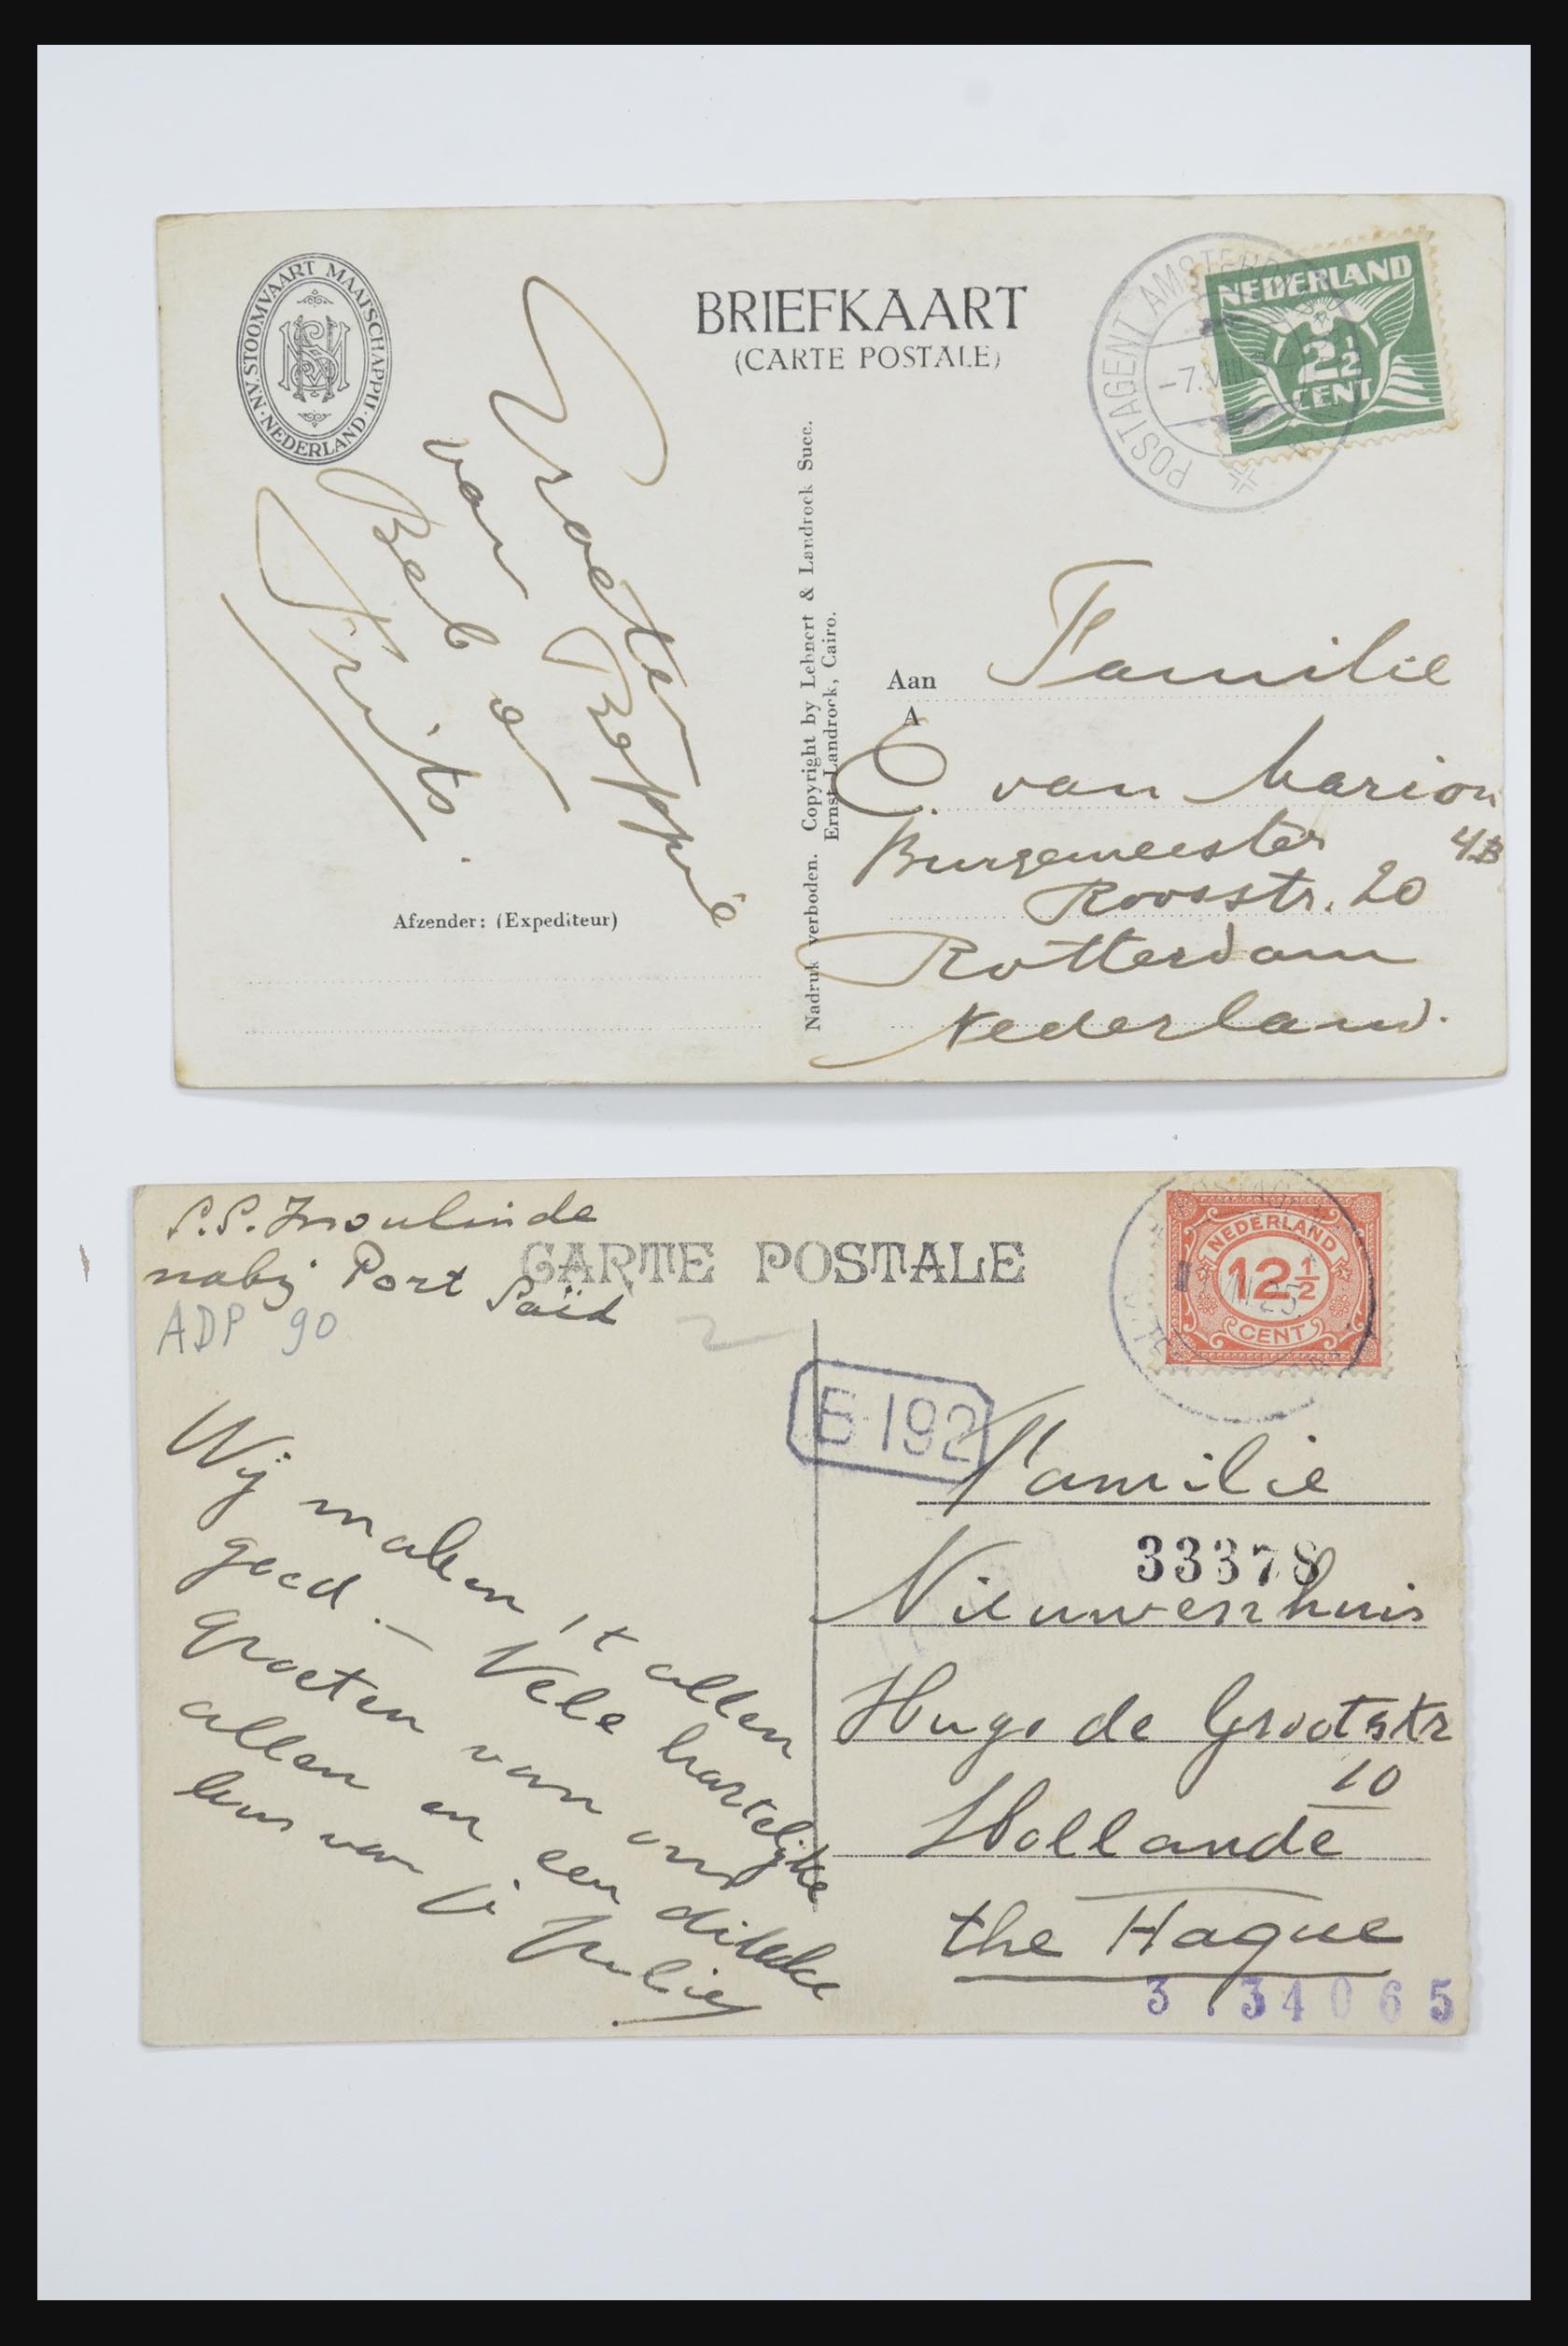 N.V. STOOMVAART MAATSCHAPPIJ · NEDERLAND ·
BRIEFKAART
(CARTE POSTALE)
POSTAGENT AMSTERD
-7.VIII
NEDERLAND
2½
CENT
Groeten
van Beppie
Beb en
Frits.
Afzender: (Expediteur)
Nadruk verboden. Copyright by Lehnert & Landrock Succ.
Ernst Landrock, Cairo.
Aan
A
Familie
C. van Marion
Burgemeester 4B
Roosstr. 20
Rotterdam
Nederland.
S.S. Insulinde
nabij Port Saïd
ADP 90
CARTE POSTALE
NEDERLAND
12½
CENT
2
E 192
Wij maken 't allen
goed. — Vele hartelijke
groeten van ons
allen en een dikke
kus van je Julie
Familie
33378
Nieuwenhuis
Hugo de Grootstr
10
Hollande
the Hague
3 . 34065